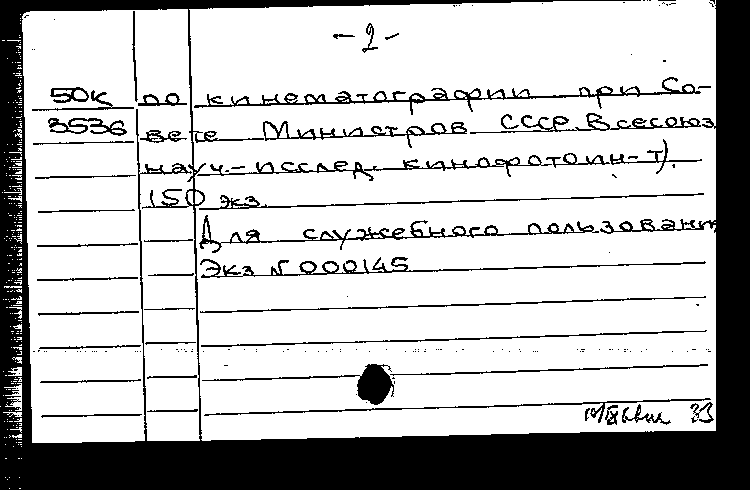 - 2 -
50к по кинематографии при Со-
3536 вете Министров СССР. Всесоюз
науч.-исслед. кинофотоин-т).
150 экз.
Для служебного пользования
Экз N 000145
33